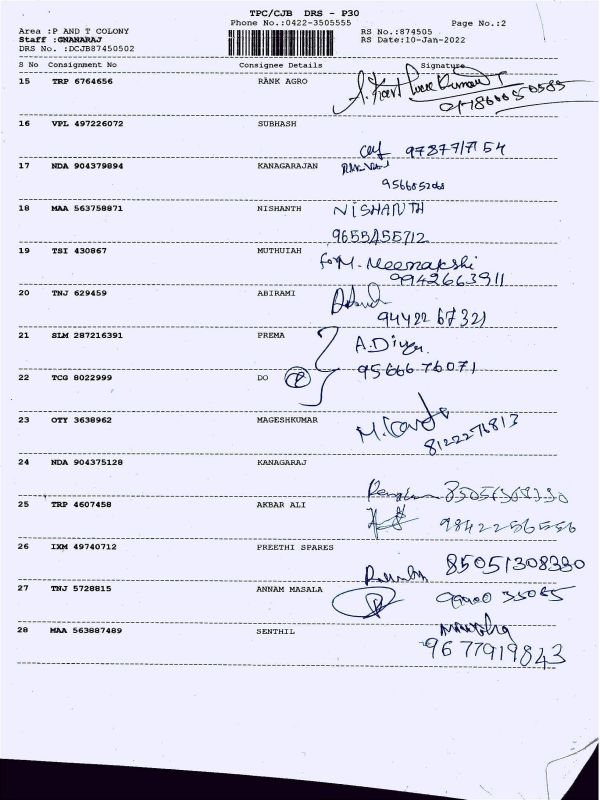 TPC/CJB DRS - P30
Phone No.:0422-3505555 Page No.:2
Area :P AND T COLONY RS No.:874505
Staff :GNANARAJ RS Date:10-Jan-2022
DRS No. :DCJB87450502
S No Consignment No Consignee Details Signature
15 TRP 6764656 RANK AGRO
16 VPL 497226072 SUBHASH
9787717154
17 NDA 904379894 KANAGARAJAN
9566052060
18 MAA 563758871 NISHANTH NISHANTH
9655455712
19 TSI 430867 MUTHUIAH for M. Meenakshi
9942663911
20 TNJ 629459 ABIRAMI
9442267321
21 SLM 287216391 PREMA A.Divya
9566676071
22 TCG 8022999 DO P
23 OTY 3638962 MAGESHKUMAR
8122276813
24 NDA 904375128 KANAGARAJ
25 TRP 4607458 AKBAR ALI
9842256556
26 IXM 49740712 PREETHI SPARES 85051308330
27 TNJ 5728815 ANNAM MASALA
28 MAA 563887489 SENTHIL
9677919843